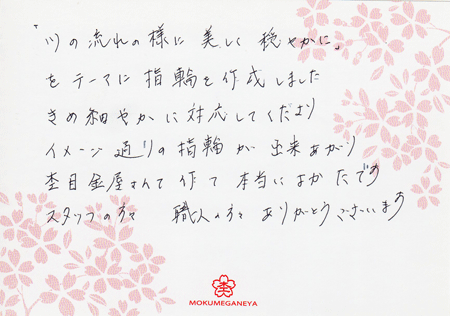 「川の流れの様に 美しく 穏やかに」
をテーマに 指輪を作成しました
きめ細やかに対応してくださり
イメージ通りの指輪が 出来あがり
杢目金屋さんで 作って 本当によかったです
スタッフの方々 職人の方々 ありがとうございます
MOKUMEGANEYA